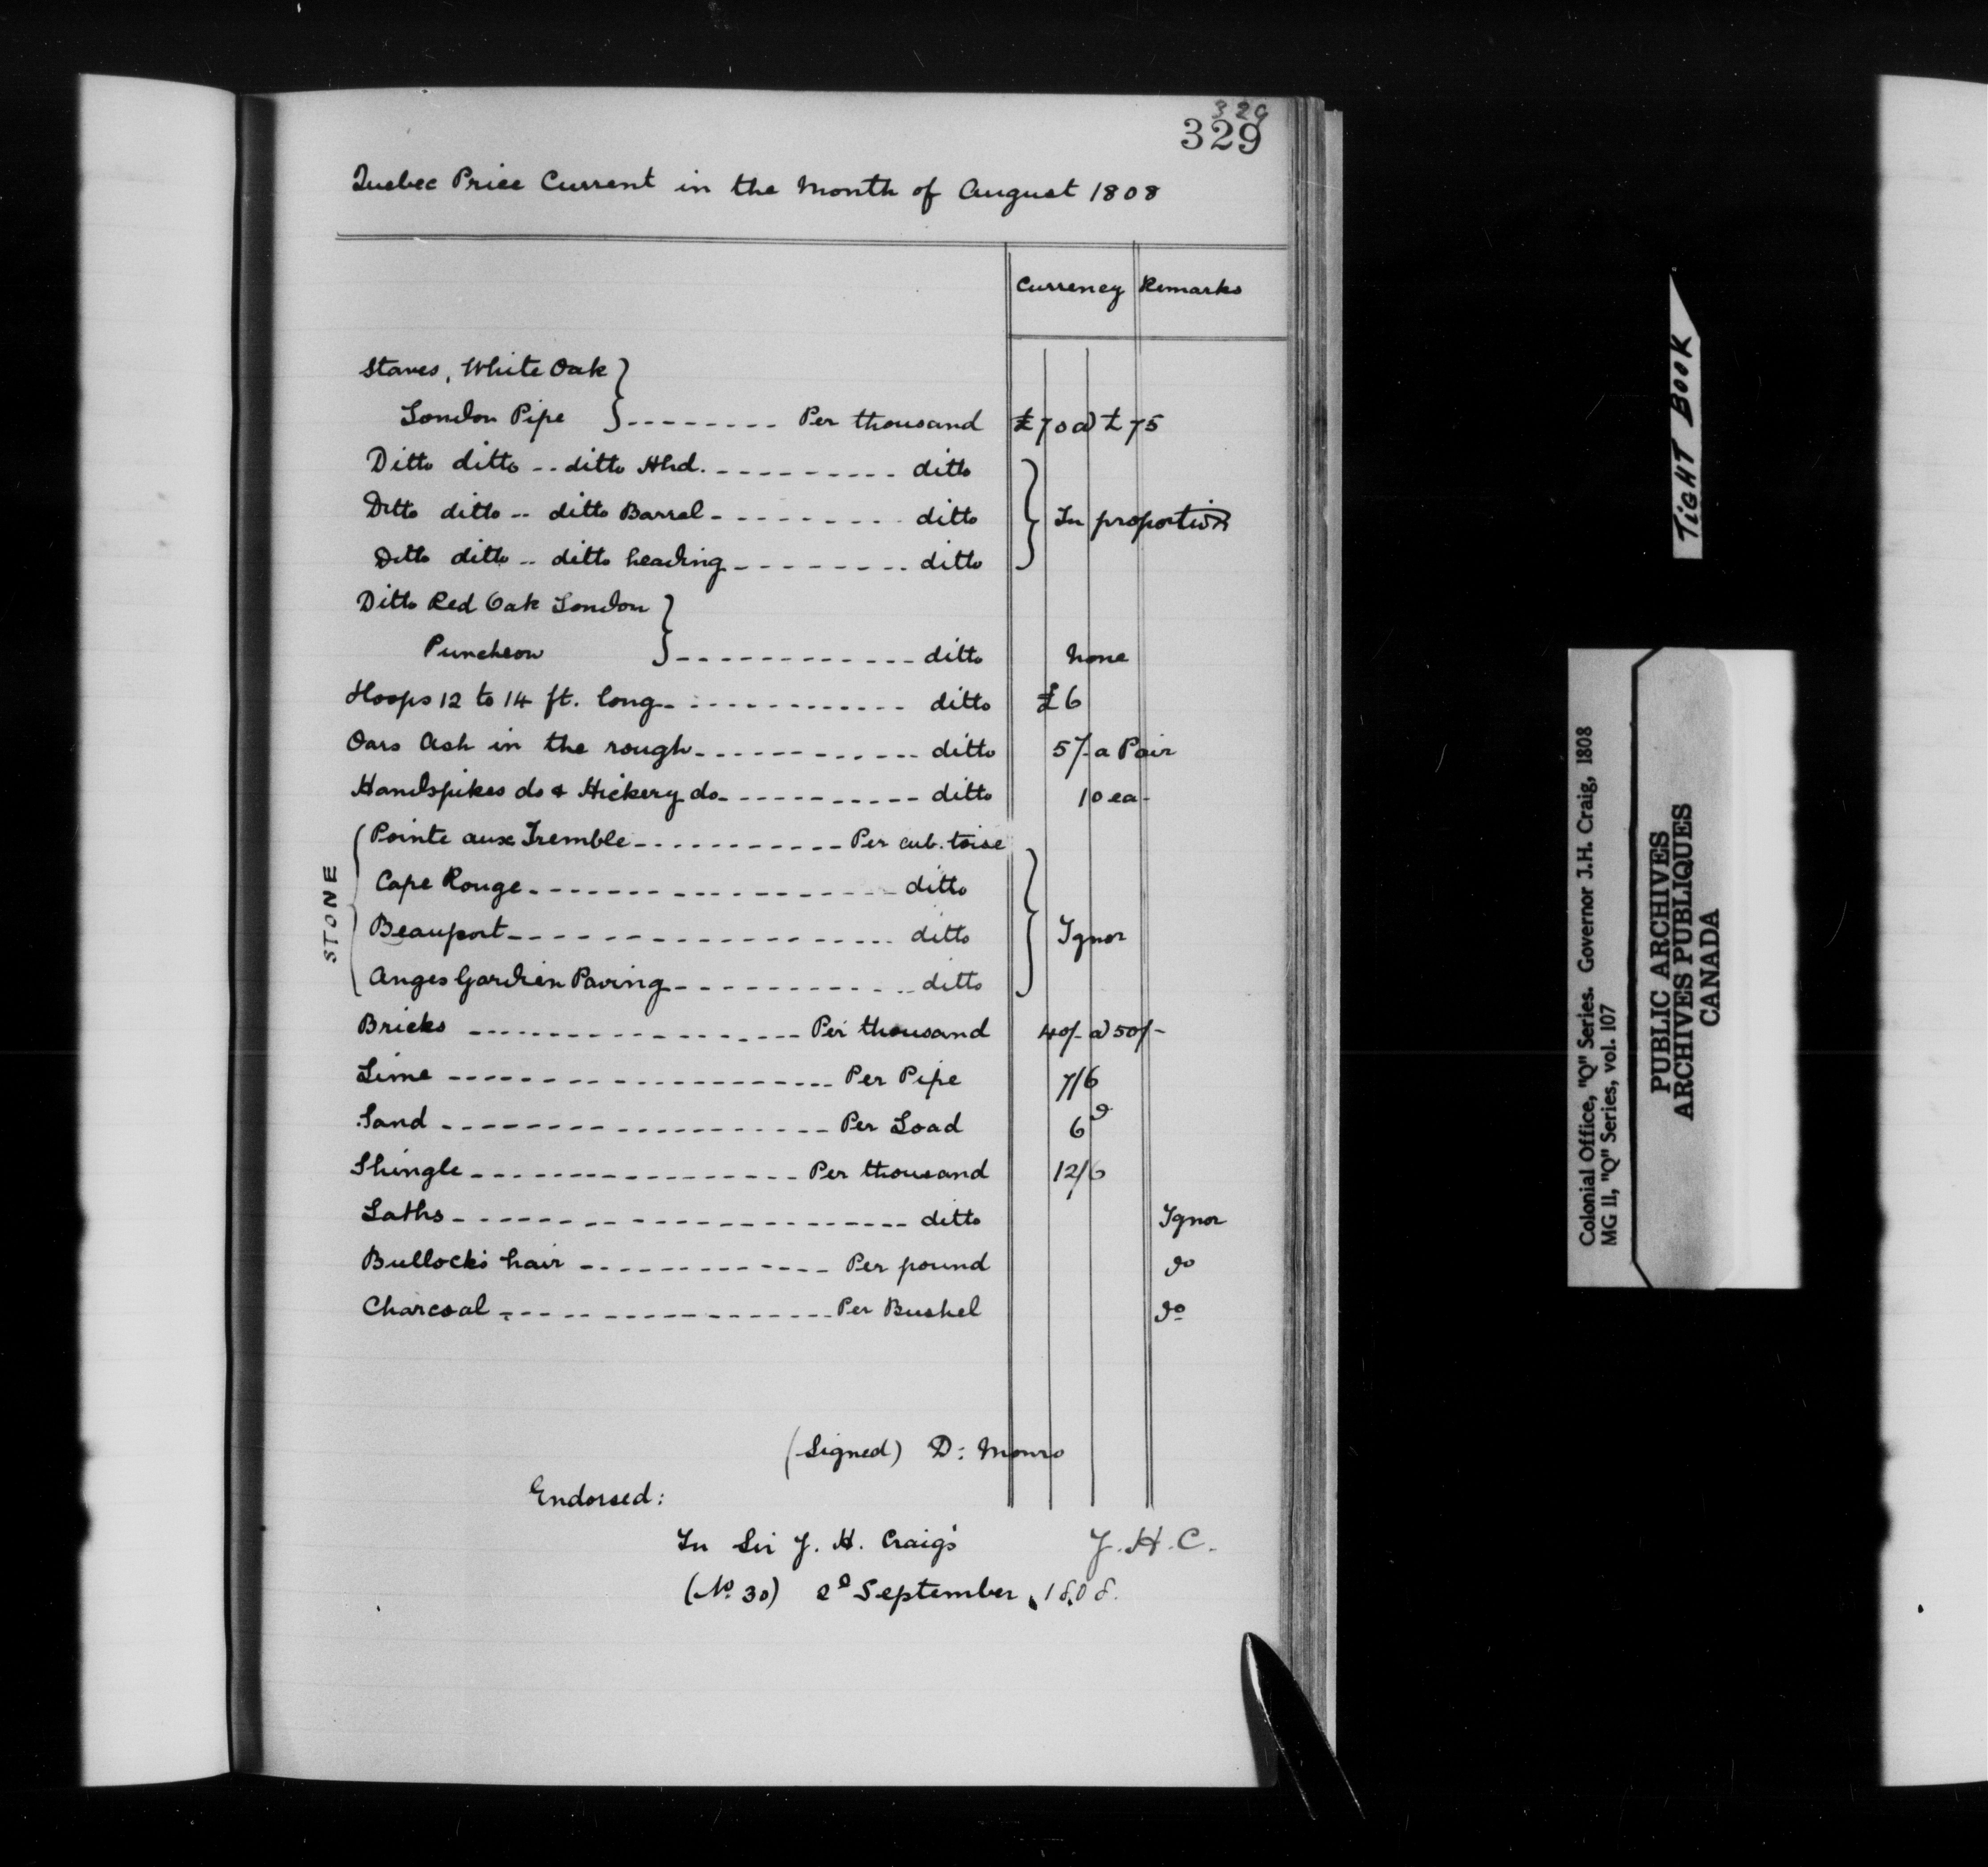 329
329
Quebec Price Current in the Month of August 1808
Currency Remarks
Staves, White Oak
London Pipe -------- Per thousand £70 a) £75
Ditto ditto -- ditto Hhd. ---------- ditto
Ditto ditto -- ditto Barrel --------- ditto In proportion
Ditto ditto -- ditto heading -------- ditto
Ditto Red Oak London
Puncheon ------------ ditto None
Hoops 12 to 14 ft. long ------------ ditto £6
Oars Ash in the rough ----------- ditto 5/- a Pair
Handspikes do & Hickery do ---------- ditto 10 ea-
STONE
Pointe aux Tremble ----------- Per cub. toise
Cape Rouge ------------------ ditto
Beauport ------------------- ditto Ignor
Anges Gardien Paving ----------- ditto
Bricks ------------------ Per thousand 40/- a) 50/-
Lime ------------------- Per Pipe 7/6
Sand ------------------- Per Load 6d
Shingle ---------------- Per thousand 12/6
Laths ---------------------- ditto Ignor
Bullock's hair ------------ Per pound do
Charcoal ---------------- Per Bushel do
(Signed) D: Monro
Endorsed:
In Sir J. H. Craig's J.H.C.
(No. 30) 2d September, 1808.
TIGHT BOOK
Colonial Office, "Q" Series. Governor J.H. Craig, 1808
MG 11, "Q" Series, vol. 107
PUBLIC ARCHIVES
ARCHIVES PUBLIQUES
CANADA